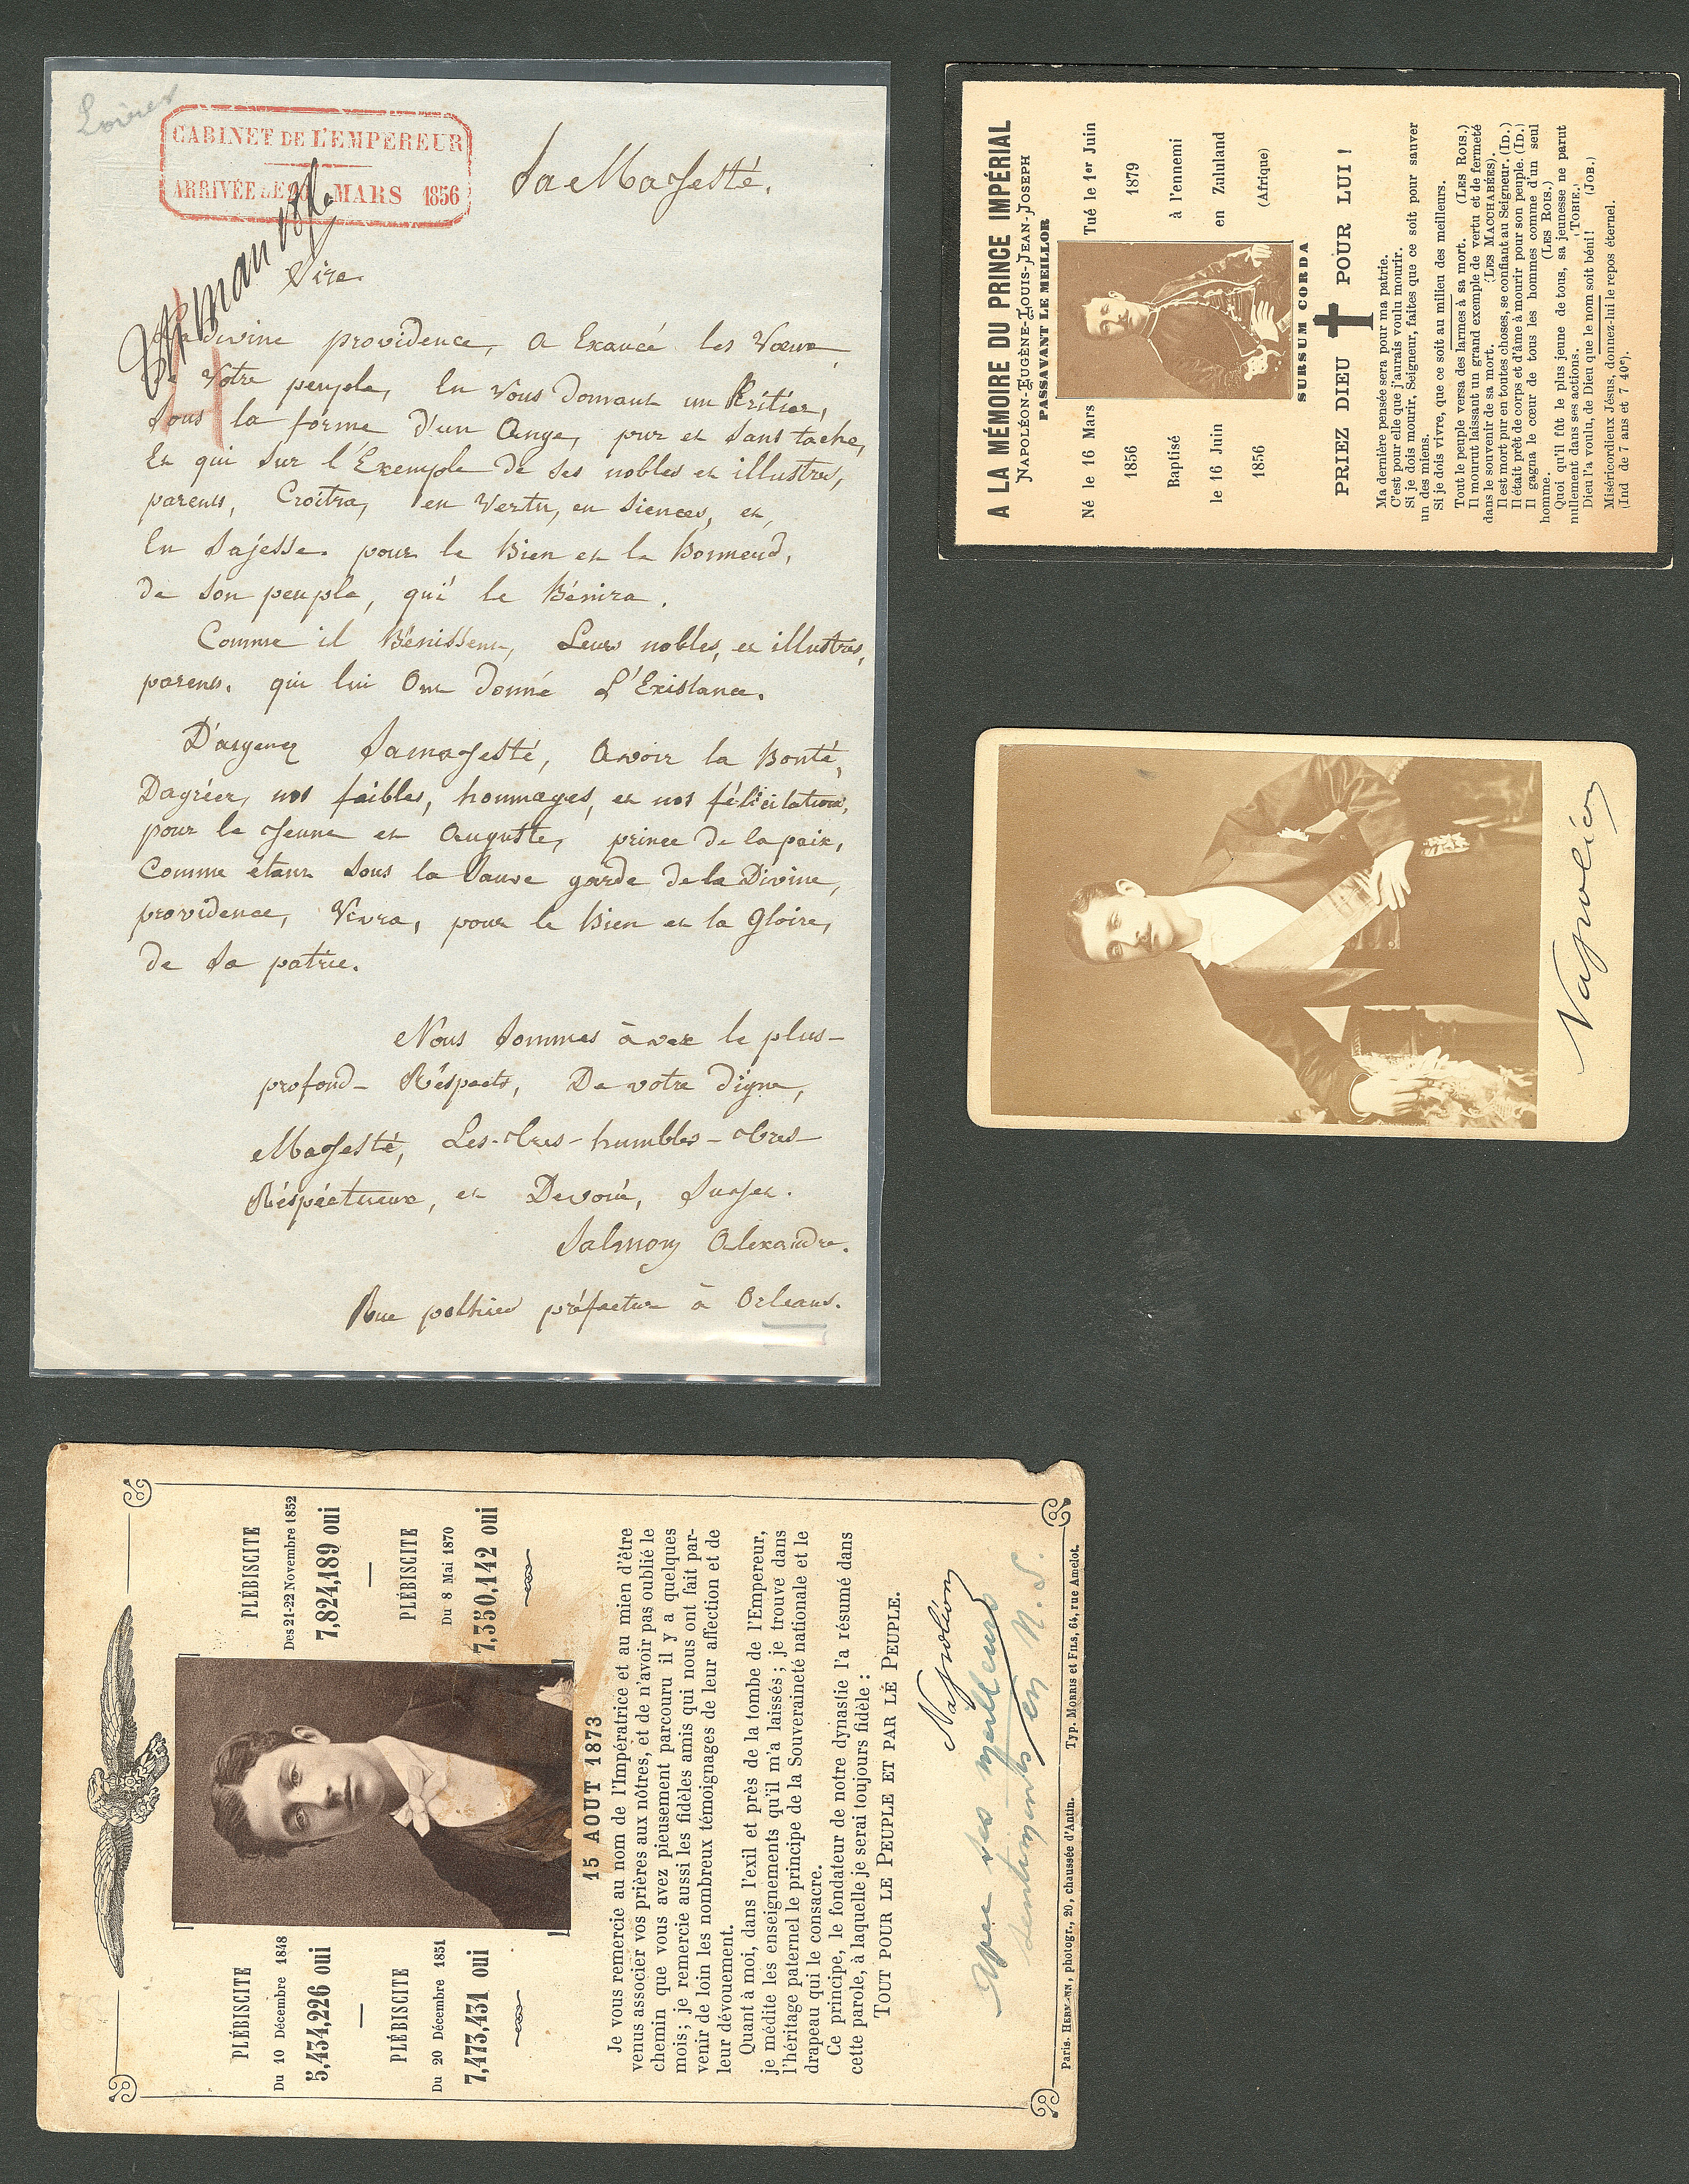 Loiret
CABINET DE L'EMPEREUR
ARRIVÉE LE 20 MARS 1856
Sa Majesté.
Sire
La divine providence, a Exaucé les Vœux
de Votre peuple, En Vous Donnant un Héritier,
sous la forme d'un Ange, pur et sans tache,
Et qui sur l'Exemple de ses nobles et illustres,
parents, Croîtra, en Vertu, en Siences, et,
En Sajesse pour le Bien et le Bonneud,
de son peuple, qui le Bénira.
Comme il Bénissent, Leurs nobles, et illustres,
parents. qui lui Ont donné L'Existance.
D'aigenez Samajesté, Avoir la Bonté,
Dagréer, nos faibles, hommages, et nos félicitations,
pour le Jeune et Auguste, prince de la paix,
Comme étant Sous la Sauve garde de la Divine,
providence, Vivra, pour le Bien et la Gloire,
de Sa patrie.
Nous Sommes àvec le plus-
profond- Réspects, De votre digne,
Majesté, Les-tres-humbles-tres-
Réspéctueux, et Devoué, Surjet.
Salmon Alexandre.
Rue pothier préfecture à Orleans.
A LA MÉMOIRE DU PRINCE IMPÉRIAL
NAPOLÉON-EUGÈNE-LOUIS-JEAN-JOSEPH
PASSAVANT LE MEILLOR
Né le 16 Mars
1856
Baptisé
le 16 Juin
1856
Tué le 1er Juin
1879
à l'ennemi
en Zululand
(Afrique)
SURSUM CORDA
PRIEZ DIEU POUR LUI !
Ma dernière pensée sera pour ma patrie.
C'est pour elle que j'aurais voulu mourir.
Si je dois mourir, Seigneur, faites que ce soit pour sauver
un des miens.
Si je dois vivre, que ce soit au milieu des meilleurs.
Tout le peuple versa des larmes à sa mort. (LES ROIS.)
Il mourut laissant un grand exemple de vertu et de fermeté
dans le souvenir de sa mort. (LES MACCHABÉES).
Il est mort pur en toutes choses, se confiant au Seigneur. (ID.)
Il était prêt de corps et d'âme à mourir pour son peuple. (ID.)
Il gagna le cœur de tous les hommes comme d'un seul
homme. (LES ROIS.)
Quoi qu'il fût le plus jeune de tous, sa jeunesse ne parut
nullement dans ses actions. (TOBIE.)
Dieu l'a voulu, de Dieu que le nom soit béni! (JOB.)
Miséricordieux Jésus, donnez-lui le repos éternel.
(Ind de 7 ans et 7 40e).
Napoléon
PLÉBISCITE
Du 10 Décembre 1848
5,434,226 oui
PLÉBISCITE
Du 20 Décembre 1851
7,473,431 oui
PLÉBISCITE
Des 21-22 Novembre 1852
7,824,189 oui
PLÉBISCITE
Du 8 Mai 1870
7,350,142 oui
15 AOUT 1873
Je vous remercie au nom de l'Impératrice et au mien d'être
venus associer vos prières aux nôtres, et de n'avoir pas oublié le
chemin que vous avez pieusement parcouru il y a quelques
mois; je remercie aussi les fidèles amis qui nous ont fait par-
venir de loin les nombreux témoignages de leur affection et de
leur dévouement.
Quant à moi, dans l'exil et près de la tombe de l'Empereur,
je médite les enseignements qu'il m'a laissés; je trouve dans
l'héritage paternel le principe de la Souveraineté nationale et le
drapeau qui le consacre.
Ce principe, le fondateur de notre dynastie l'a résumé dans
cette parole, à laquelle je serai toujours fidèle :
TOUT POUR LE PEUPLE ET PAR LE PEUPLE.
Napoléon
Avec ses meilleurs
sentiments en N. S.
Paris. HERMANN, photogr., 20, chaussée d'Antin. Typ. MORRIS et FILS, 64, rue Amelot.